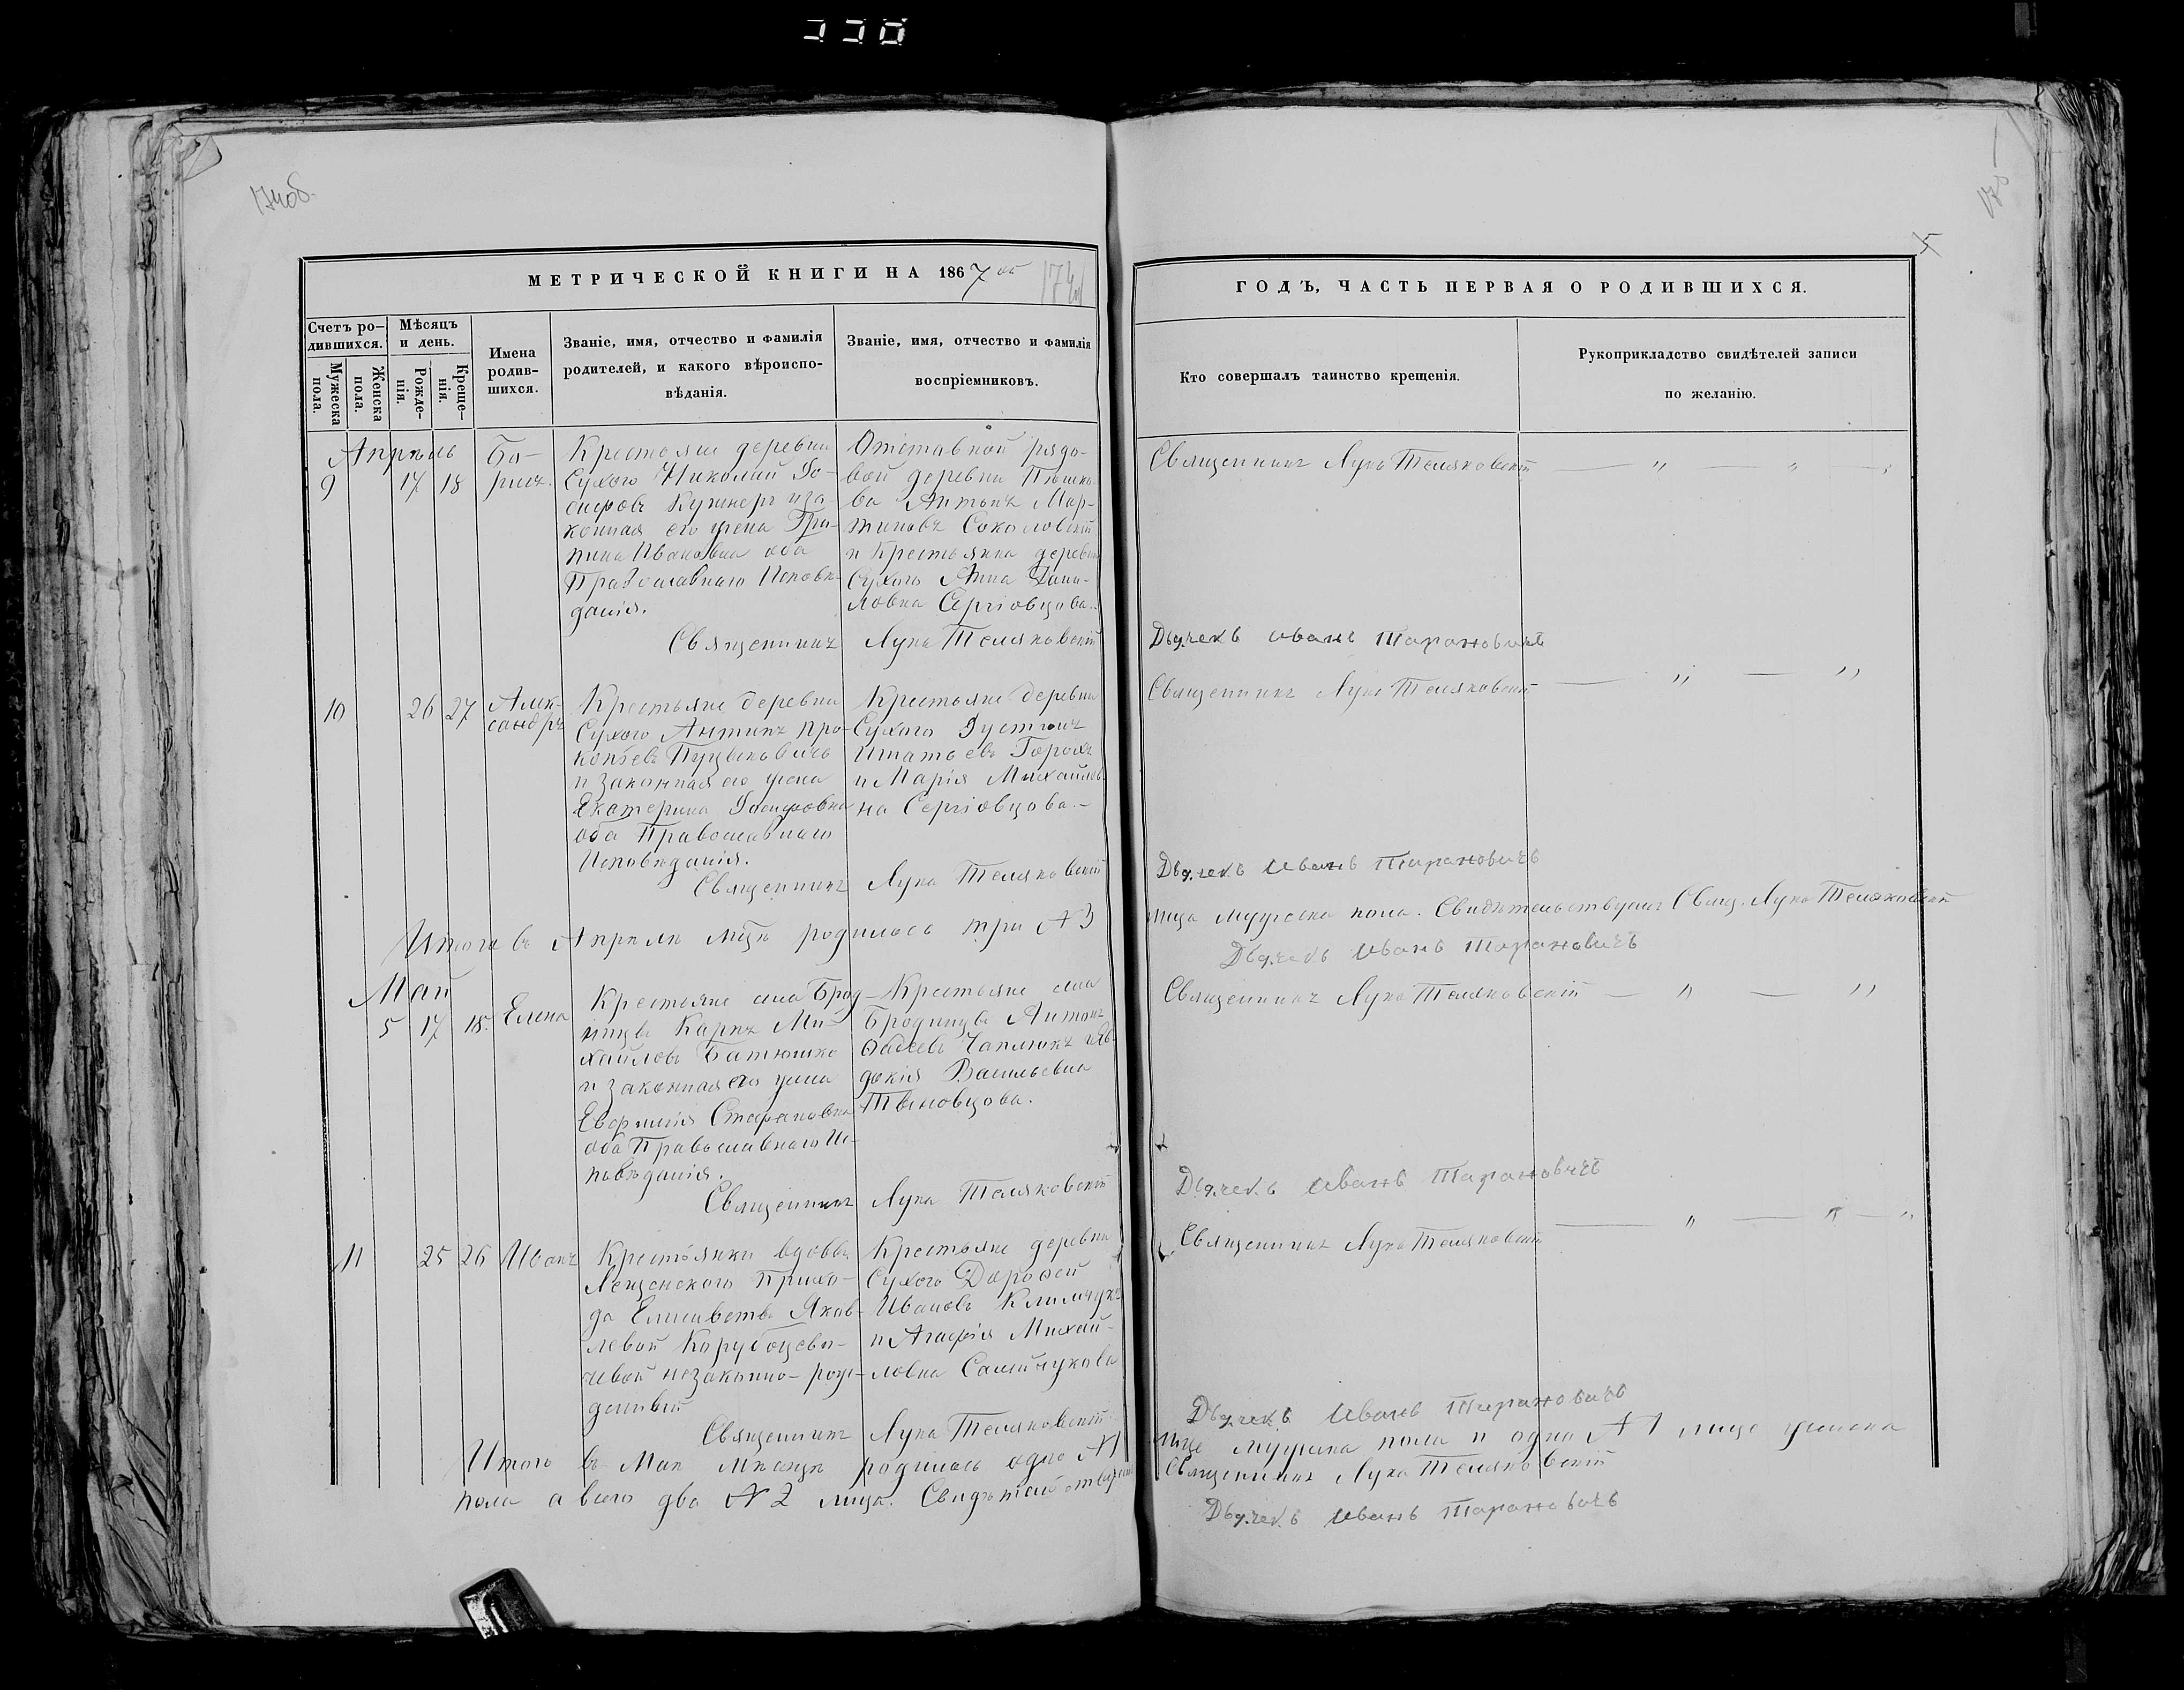 174об.
175
5
МЕТРИЧЕСКОЙ КНИГИ НА 1867 ой
174
ГОДЪ, ЧАСТЬ ПЕРВАЯ О РОДИВШИХСЯ.
Счетъ ро-
дившихся.
Мужеска
пола.
Женска
пола.
Мѣсяцъ
и день.
Рожде-
нія.
Креще-
нія.
Имена
родив-
шихся.
Званіе, имя, отчество и фамилія
родителей, и какого вѣроиспо-
вѣданія.
Званіе, имя, отчество и фамилія
воспріемниковъ.
Кто совершалъ таинство крещенія.
Рукоприкладство свидѣтелей записи
по желанію.
Апрѣль
9 17 18
Бо-
рисъ.
Крестьяне деревни
Сухого Николай Іо-
сифовъ Кушнеръ и за-
конная его жена Гри-
пина Ивановна оба
Православнаго Исповѣ-
данія.
Отставной рядо-
вой деревни
ва Антонъ Мар-
тиновъ Соколовскій
и Крестьянка деревни
Сухого Анна Дани-
ловна Сергіовцова.
Священникъ Лука Теляковскій
Священникъ Лука Теляковскій
Дьячекъ Иванъ Тарановичъ
10 26 27
Алек-
сандръ
Крестьяне деревни
Сухого Антипъ Про-
копьевъ Пуцыковичъ
и законная его жена
Екатерина Іосифовна
оба Православнаго
Исповѣданія.
Крестьяне деревни
Сухого Іустинъ
Игнатьевъ Горохъ
и Марія Михайлов-
на Сергіовцова.-
Священникъ Лука Теляковскій
Священникъ Лука Теляковскій
Дьячекъ Иванъ Тарановичъ
Итого въ Апрѣлѣ мцѣ родилось три № 3
лица мужеска пола. Свидѣтельствуетъ Свящ. Лука Теляковскій
Дьячекъ Иванъ Тарановичъ
Май
5 17 18. Елена
Крестьяне села Брод-
ницы Карпъ Ми-
хайловъ Батюшко
и законная его жена
Евфимія Стефановна
оба Православнаго Ис-
повѣданія.
Крестьяне села
Бродницы Антонъ
Фадеевъ Чаплюкъ и Ев-
докія Васильевна
Тыновцова.
Священникъ Лука Теляковскій
Священникъ Лука Теляковскій
Дьячекъ Иванъ Тарановичъ
11 25 26 Иванъ
Крестьянки вдовы
Лещенского Прихо-
да Елисаветы Яков-
левой
чевой незаконно-рож-
денный
Крестьяне деревни
Сухого Дорофей
Ивановъ Климчукъ
и Агафія Михай-
ловна Самійчукова
Священникъ Лука Теляковскій
Священникъ Лука Теляковскій
Дьячекъ Иванъ Тарановичъ
Итого въ Маѣ мѣсяцѣ родилось одно № 1
лице мужеска пола и одно № 1 лице женска
пола а всего два № 2 лица.
Священникъ Лука Теляковскій
Дьячекъ Иванъ Тарановичъ